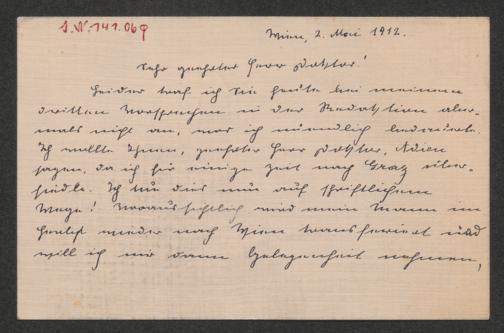 I.N. 141.069
Wien, 2. Mai 1912.
Sehr geehrter Herr Doktor!
Leider traf ich Sie heute bei meinem
dritten Vorsprechen in der Redaktion aber-
mals nicht an, was ich unendlich bedauerte.
Ich wollte Ihnen, geehrter Herr Doktor, Adieu
sagen, da ich für einige Zeit nach Graz über-
siedle. Ich tu dies nun auf schriftlichem
Wege! Voraussichtlich wird mein Mann im
Herbst wieder nach Wien transferiert und
will ich mir dann Gelegenheit nehmen,